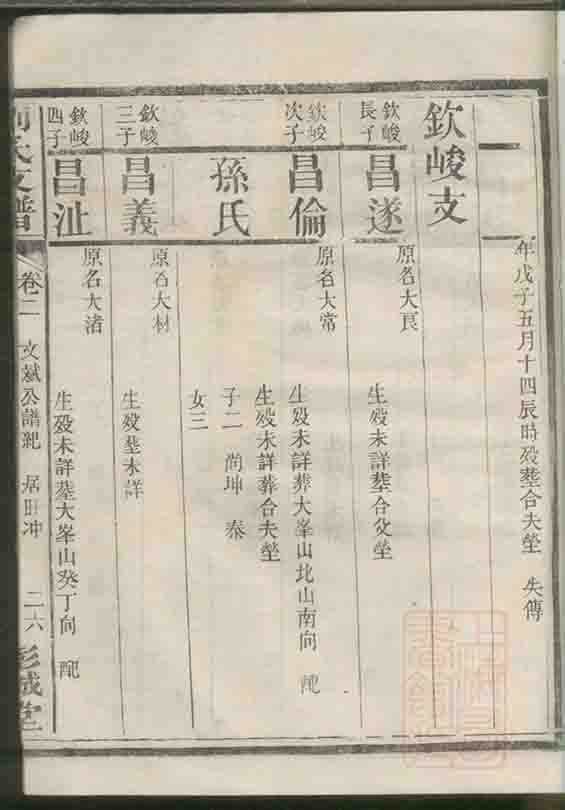 年戊子五月十四辰時歿葬合夫塋 失傳
欽峻支
欽峻長子
昌遂
原名大良
生歿未詳葬合父塋
欽峻次子
昌倫
原名大常
生歿未詳葬大峯山北山南向 配
孫氏
生歿未詳葬合夫塋
子二 尚坤 泰
女三
欽峻三子
昌義
原名大材
生歿塟未詳
欽峻四子
昌沚
原名大渚
生歿未詳塟大峯山癸丁向 配
氏支譜 卷二 文斌公譜親 居田冲 二六 彭城堂